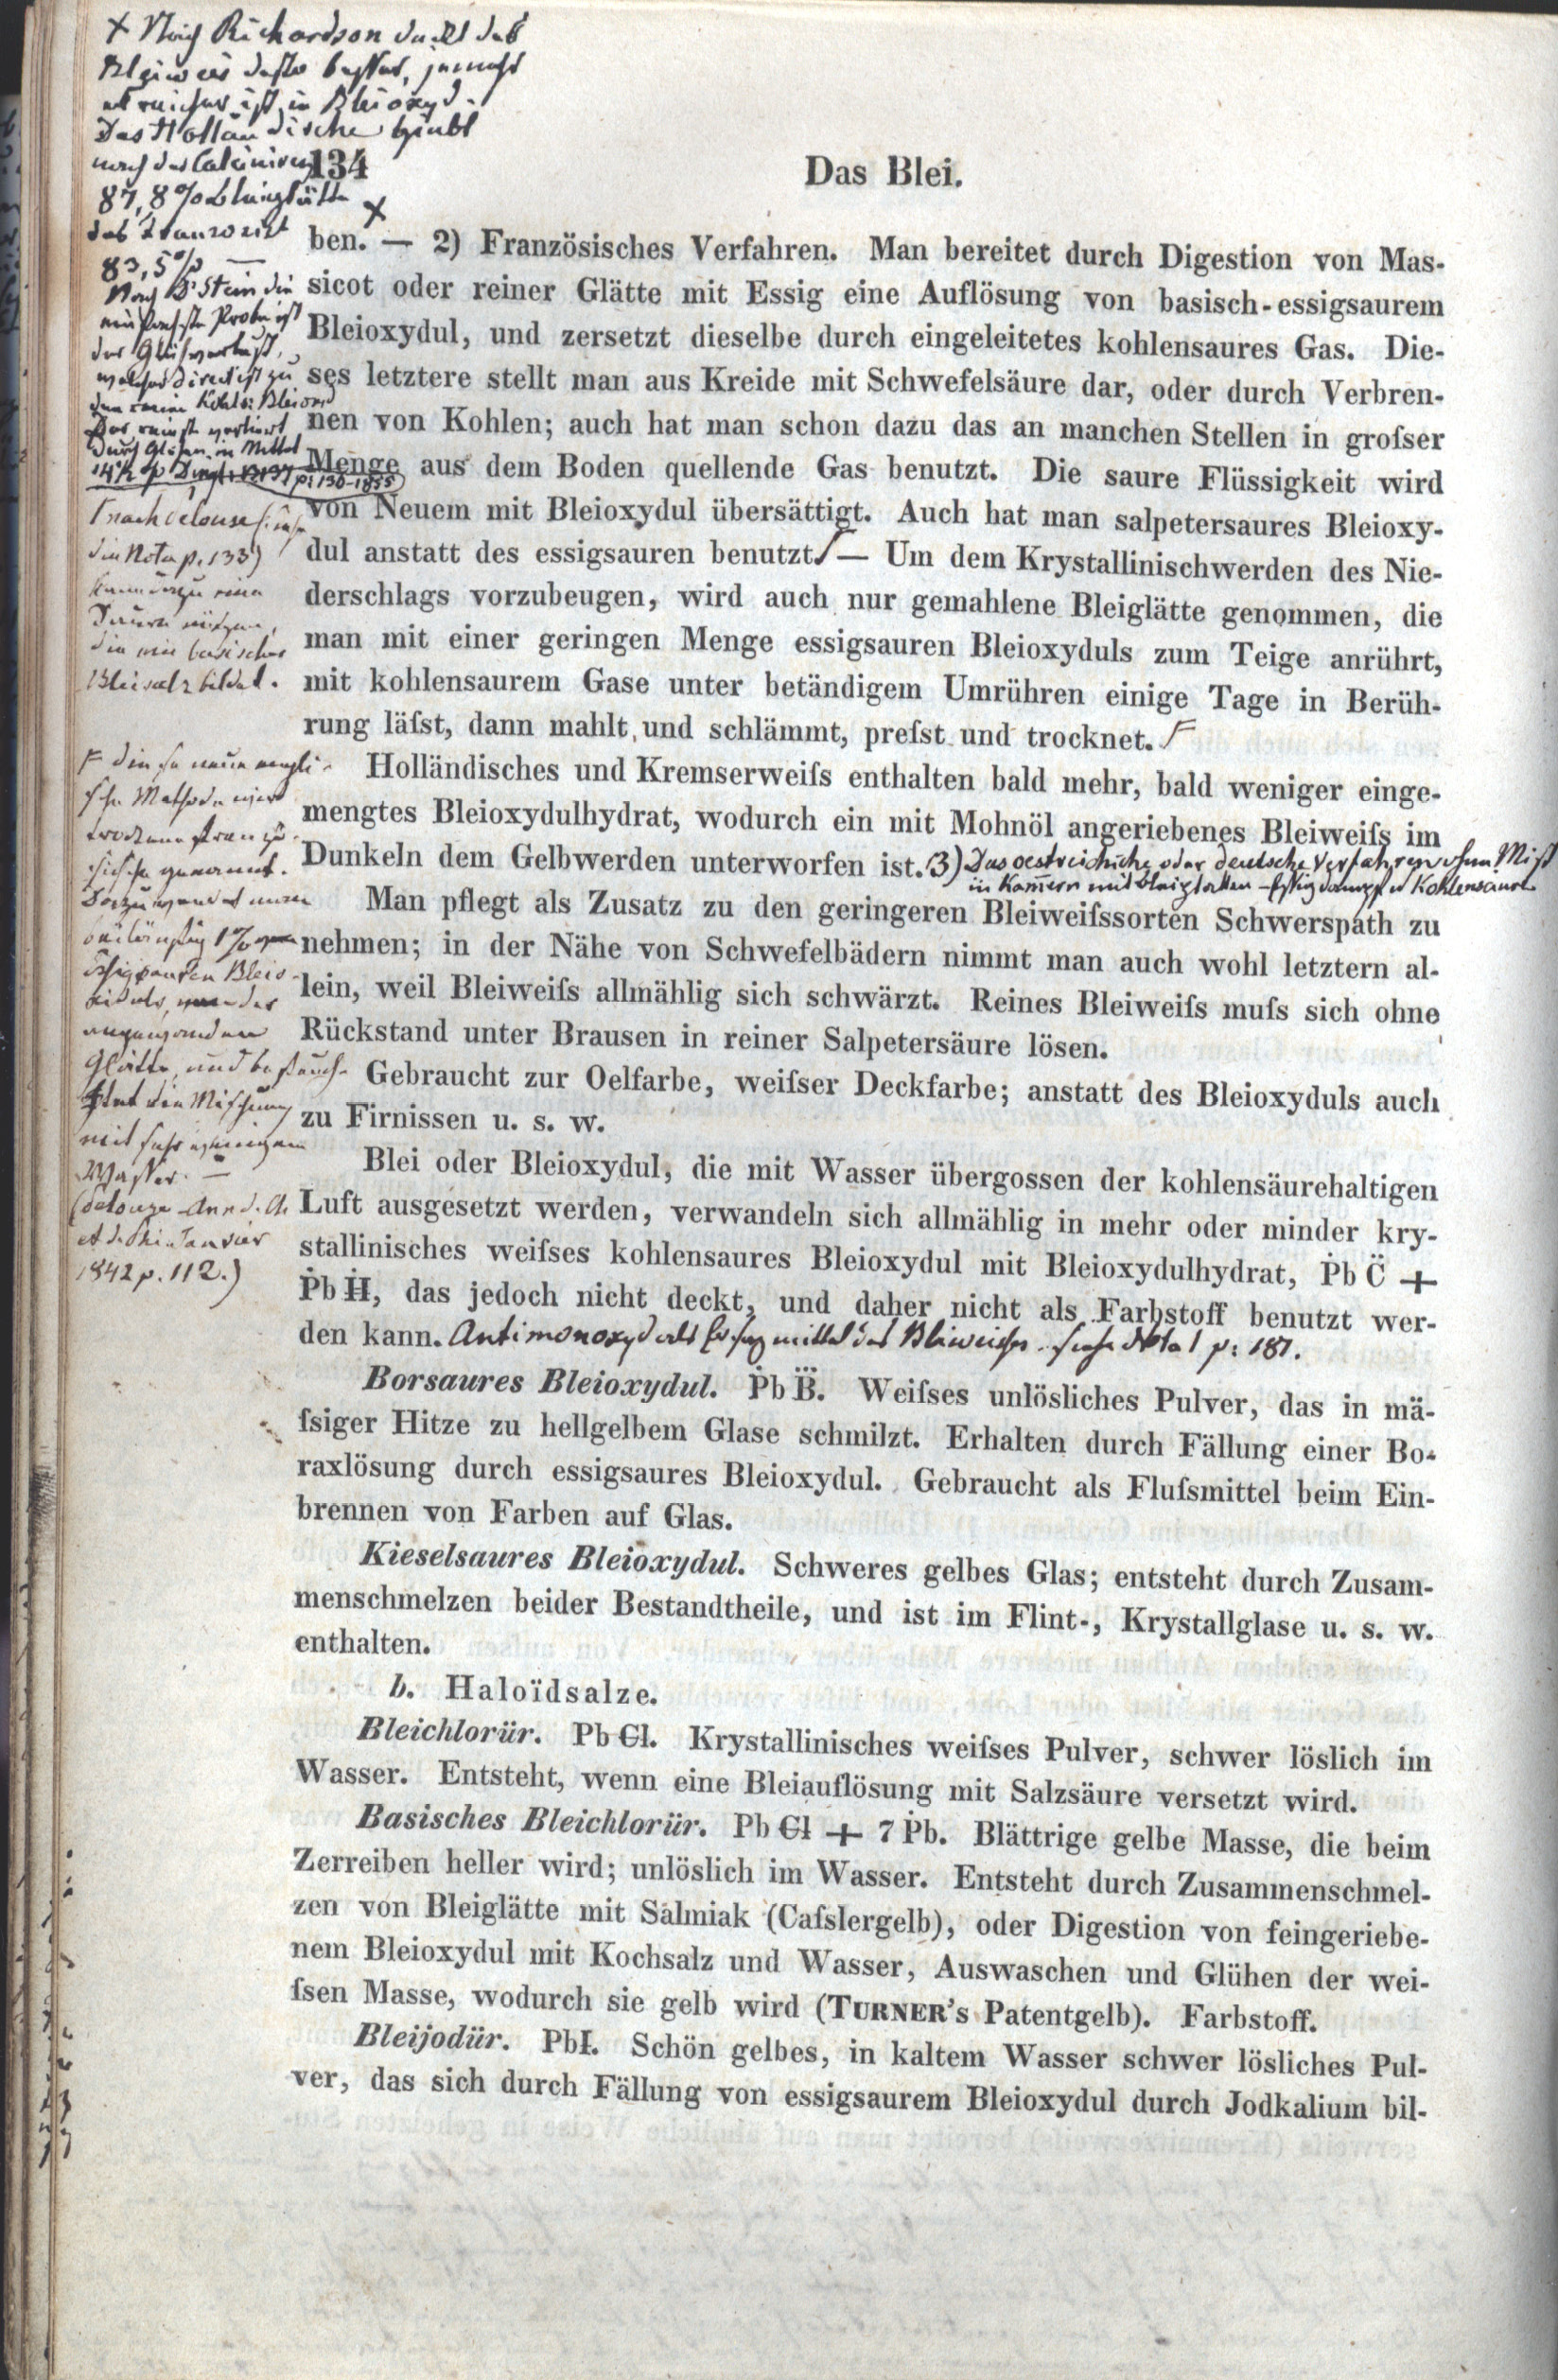 + Nach Richardson deckt das
Bleiweis desto besser, jemehr
es reicher ist in Bleioxyd.
Das Holländische giebt
nach des Calciniren
87,8% Bleiglätte
das
83,5% —
Nach Dr Stein die
einfachste Probe ist
der Glühverlust,
welcher direct ist zu
dem reine Kohls: Bleioxid
Das reinste verliert
durch Glühen im Mittel
14½ p
p: 136-1855
134
Das Blei.
ben.+ — 2) Französisches Verfahren. Man bereitet durch Digestion von Mas-
sicot oder reiner Glätte mit Essig eine Auflösung von basisch-essigsaurem
Bleioxydul, und zersetzt dieselbe durch eingeleitetes kohlensaures Gas. Die-
ses letztere stellt man aus Kreide mit Schwefelsäure dar, oder durch Verbren-
nen von Kohlen; auch hat man schon dazu das an manchen Stellen in groſser
Menge aus dem Boden quellende Gas benutzt. Die saure Flüssigkeit wird
von Neuem mit Bleioxydul übersättigt. Auch hat man salpetersaures Bleioxy-
dul anstatt des essigsauren benutzt. — Um dem Krystallinischwerden des Nie-
derschlags vorzubeugen, wird auch nur gemahlene Bleiglätte genommen, die
man mit einer geringen Menge essigsauren Bleioxyduls zum Teige anrührt,
mit kohlensaurem Gase unter betändigem Umrühren einige Tage in Berüh-
rung läſst, dann mahlt und schlämmt, preſst und trocknet. F
nach Pelouse (siehe
die Nota p. 133)
kann dazu eine
Säure nützen,
die ein basisches
Bleisalz bildet.
Holländisches und Kremserweiſs enthalten bald mehr, bald weniger einge-
mengtes Bleioxydulhydrat, wodurch ein mit Mohnöl angeriebenes Bleiweiſs im
Dunkeln dem Gelbwerden unterworfen ist. 3) Das oestreichische oder deutsche Verfahren ohne Mist
in Kam̄ern mit Bleiplatten – Essigdampf u Kohlensäure
F diese neue engli-
sche Methode wird
trockene franzö-
sische genannt.
Dazu wendet man
beiläufig 1%
essigsauren Bleio-
xiduls, der
angewandten
Glätte, und befeuch-
tet die Mischung
mit sehr wenigem
Wasser. —
(Pelouze Ann d. Ch
et d. Phi Janvier
1842 p. 112.)
Man pflegt als Zusatz zu den geringeren Bleiweiſssorten Schwerspath zu
nehmen; in der Nähe von Schwefelbädern nimmt man auch wohl letztern al-
lein, weil Bleiweiſs allmählig sich schwärzt. Reines Bleiweiſs muſs sich ohne
Rückstand unter Brausen in reiner Salpetersäure lösen.
Gebraucht zur Oelfarbe, weiſser Deckfarbe; anstatt des Bleioxyduls auch
zu Firnissen u. s. w.
Blei oder Bleioxydul, die mit Wasser übergossen der kohlensäurehaltigen
Luft ausgesetzt werden, verwandeln sich allmählig in mehr oder minder kry-
stallinisches weiſses kohlensaures Bleioxydul mit Bleioxydulhydrat, Ṗb C̈ +
Ṗb Ḣ, das jedoch nicht deckt, und daher nicht als Farbstoff benutzt wer-
den kann. Antimonoxyd als Ersatzmittel des Bleiweisses. siehe Nota 1 p: 187.
Borsaures Bleioxydul. Ṗb B⃛. Weiſses unlösliches Pulver, das in mä-
ſsiger Hitze zu hellgelbem Glase schmilzt. Erhalten durch Fällung einer Bo-
raxlösung durch essigsaures Bleioxydul. Gebraucht als Fluſsmittel beim Ein-
brennen von Farben auf Glas.
Kieselsaures Bleioxydul. Schweres gelbes Glas; entsteht durch Zusam-
menschmelzen beider Bestandtheile, und ist im Flint-, Krystallglase u. s. w.
enthalten.
b. Haloïdsalze.
Bleichlorür. Pb Cl. Krystallinisches weiſses Pulver, schwer löslich im
Wasser. Entsteht, wenn eine Bleiauflösung mit Salzsäure versetzt wird.
Basisches Bleichlorür. Pb Cl + 7 Ṗb. Blättrige gelbe Masse, die beim
Zerreiben heller wird; unlöslich im Wasser. Entsteht durch Zusammenschmel-
zen von Bleiglätte mit Salmiak (Caſslergelb), oder Digestion von feingeriebe-
nem Bleioxydul mit Kochsalz und Wasser, Auswaschen und Glühen der wei-
ſsen Masse, wodurch sie gelb wird (TURNER's Patentgelb). Farbstoff.
Bleijodür. PbI. Schön gelbes, in kaltem Wasser schwer lösliches Pul-
ver, das sich durch Fällung von essigsaurem Bleioxydul durch Jodkalium bil-